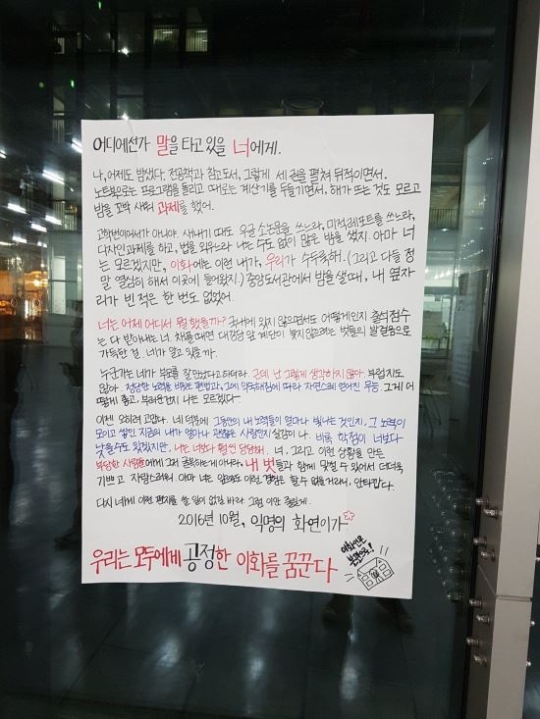 어디에선가 말을 타고 있을 너에게.
나, 어제도 밤샜다. 전공책과 참고도서, 그렇게 세 권을 펼쳐 뒤적이면서.
노트북으로는 프로그램을 돌리고 때로는 계산기를 두들기면서, 해가 뜨는 것도 모르고
밤을 꼬박 새워 과제를 했어.
고학번이어서가 아니야. 새내기 때도 우글 소논문을 쓰느라, 미적 레포트를 쓰느라,
디자인 과제를 하고, 법을 외우느라 나는 수도 없이 많은 밤을 샜지. 아마 너
는 모르겠지만, 이화에는 이런 내가, 우리가 수두룩해. (그리고 다들 정
말 열심히 해서 이곳에 들어왔지.) 중앙도서관에서 밤을 샐 때, 내 옆자
리가 빈 적은 한 번도 없었어.
너는 어제 어디서 뭘 했을까? 국내에 있지 않으면서도 어떻게인지 출석 점수
는 다 받아내는 너. 채플 때면 대강당 앞 계단이 늦지 않으려는 벗들의 발걸음으로
가득한 걸 네가 알고 있을까.
누군가는 네가 부모를 잘 만났다고 하더라. 근데 난 그렇게 생각하지 않아. 부럽지도
않아. 정당한 노력을 비웃는 편법과, 그에 익숙해짐에 따라 자연스레 얻어진 무능. 그게 어
떻게 좋고, 부러운건지 나는 모르겠다.
이젠 오히려 고맙다. 네 덕분에 그동안의 내 노력들이 얼마나 빛나는 것인지, 그 노력이
모이고 쌓인 지금의 내가 얼마나 괜찮은 사람인지 실감이 나. 비록 학점이 너보다
낮을수도 있겠지만, 나는 너보다 훨씬 당당해. 너, 그리고 이런 상황을 만든
부당한 사람들에게 그저 굴복하는게 아니라, 내 벗들과 함께 맞설 수 있어서 더더욱
기쁘고 자랑스러워. 아마 너는 앞으로도 이런 경험은 할 수 없을거라니. 안타깝다.
다시 네게 이런 편지를 쓸 일이 없길 바라. 그럼 이만 줄일게.
2016년 10월, 익명의 화연이가
이화인은 본관으로!
우리는 모두에게 공정한 이화를 꿈꾼다